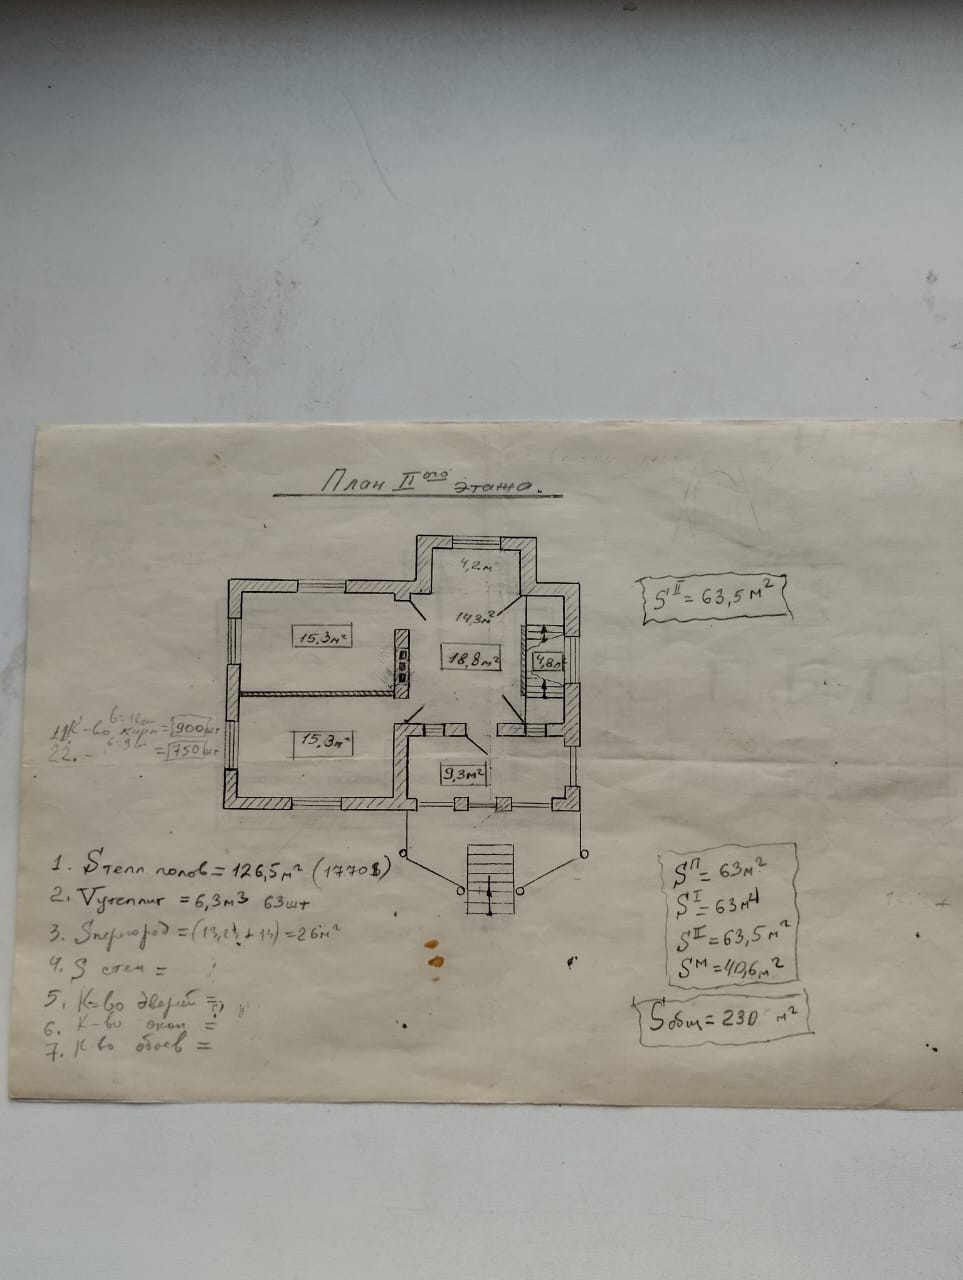 План IIого этажа.
4,2 м
14,3м²
15,3м²
18,8м²
4,8м²
15,3м²
9,3м²
S II = 63,5 м²
б=12см
1. К-во кирп = 900 шт
б=9см
2. - = 750 шт
1. Sтепл полов = 126,5 м² (1770$)
2. Vутеплит = 6,3 м³ 63 шт
3. Sперегород = (13,2 + 13) = 26 м²
4. S стен =
5. К-во дверей =
6. К-во окон =
7. К во обоев =
S П = 63 м²
S I = 63 м²
S II = 63,5 м²
S М = 40,6 м²
Sобщ = 230 м²